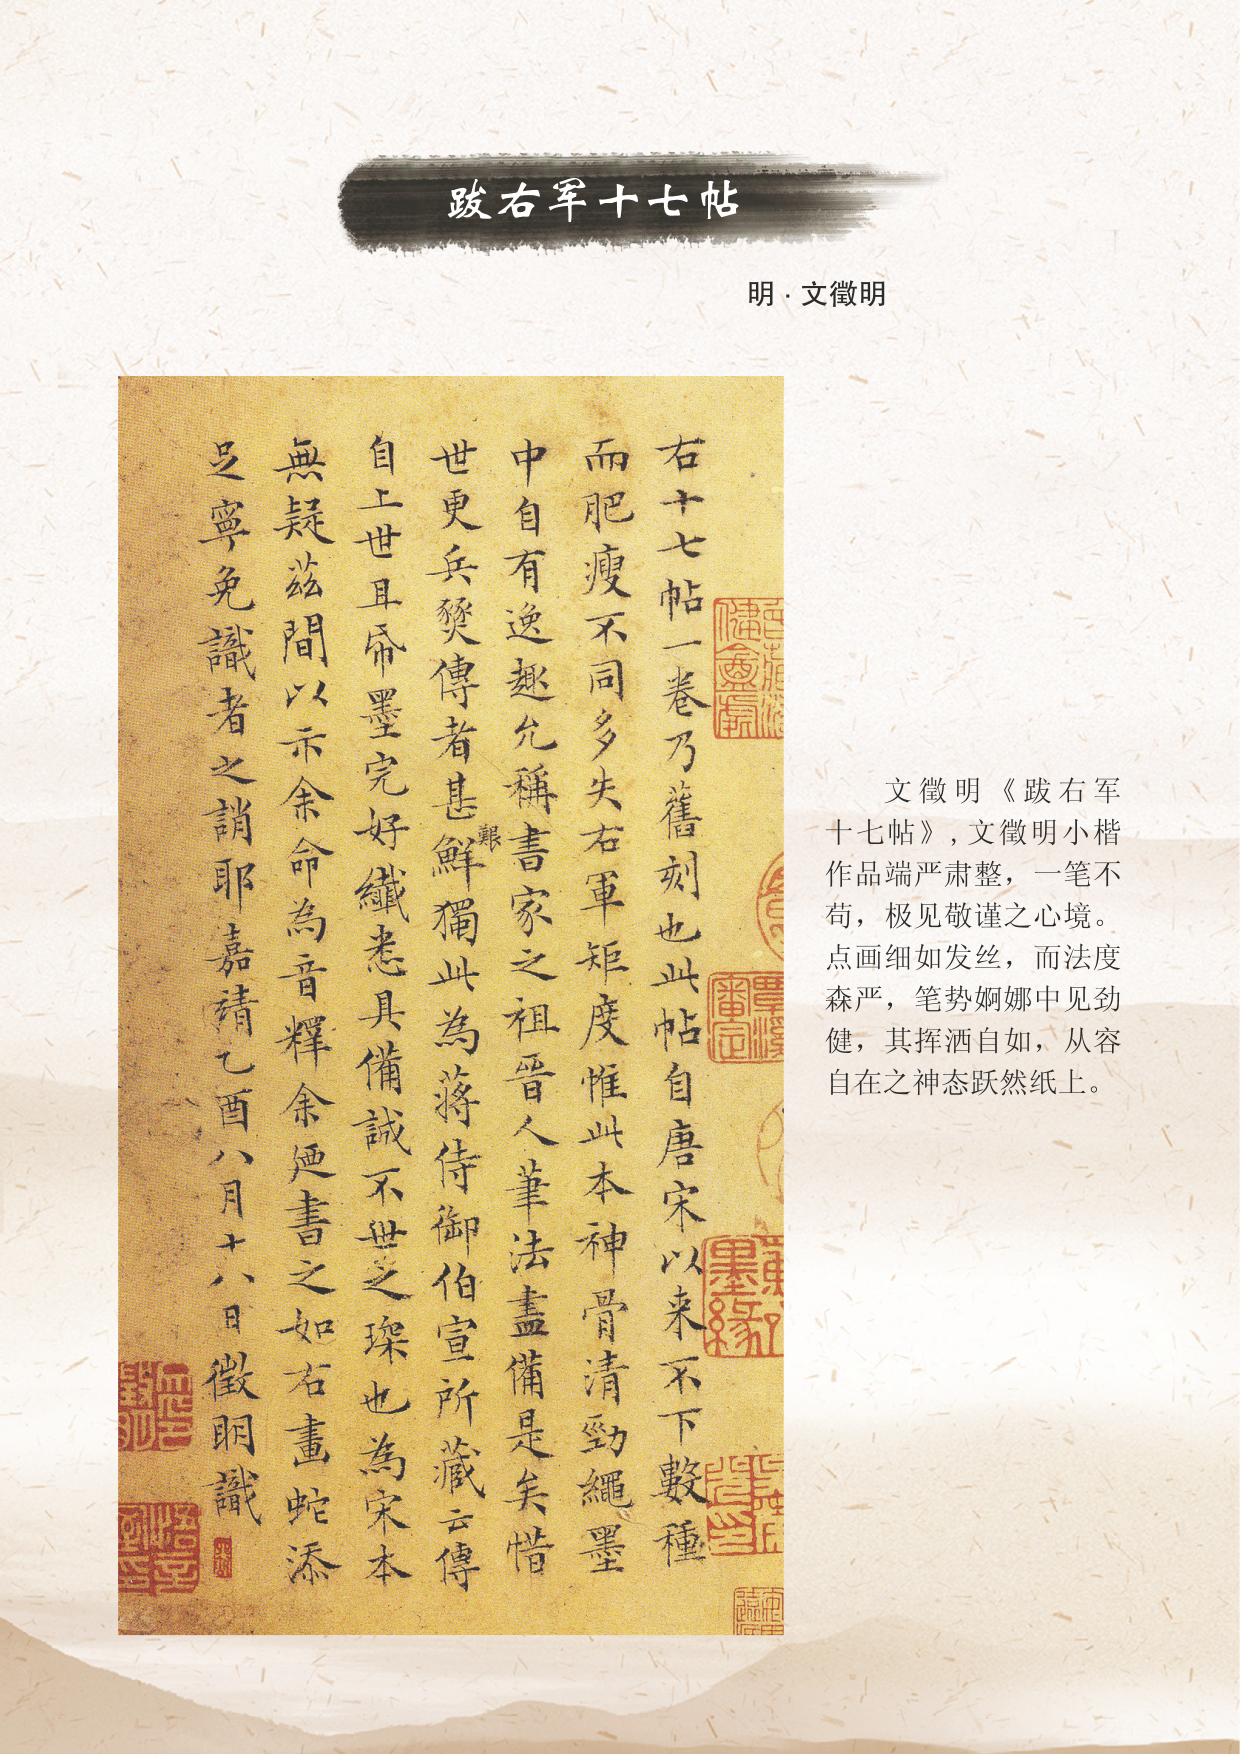 跋右军十七帖
明·文徵明
右十七帖一卷乃舊刻也此帖自唐宋以来不下數種
而肥瘦不同多失右軍矩度惟此本神骨清勁繩墨
中自有逸趣允稱書家之祖晉人筆法盡備是矣惜
世更兵燹傳者甚鮮獨此為蒋侍御伯宣所藏云傳
艱
自上世且帋墨完好纖悉具備誠不世之琛也為宋本
無疑茲間以示余命為音釋余廼書之如右畫蛇添
足寧免識者之誚耶嘉靖乙酉八月十八日徵明識
墨緣
文徵明《跋右军
十七帖》,文徵明小楷
作品端严肃整，一笔不
苟，极见敬谨之心境。
点画细如发丝，而法度
森严，笔势婀娜中见劲
健，其挥洒自如，从容
自在之神态跃然纸上。